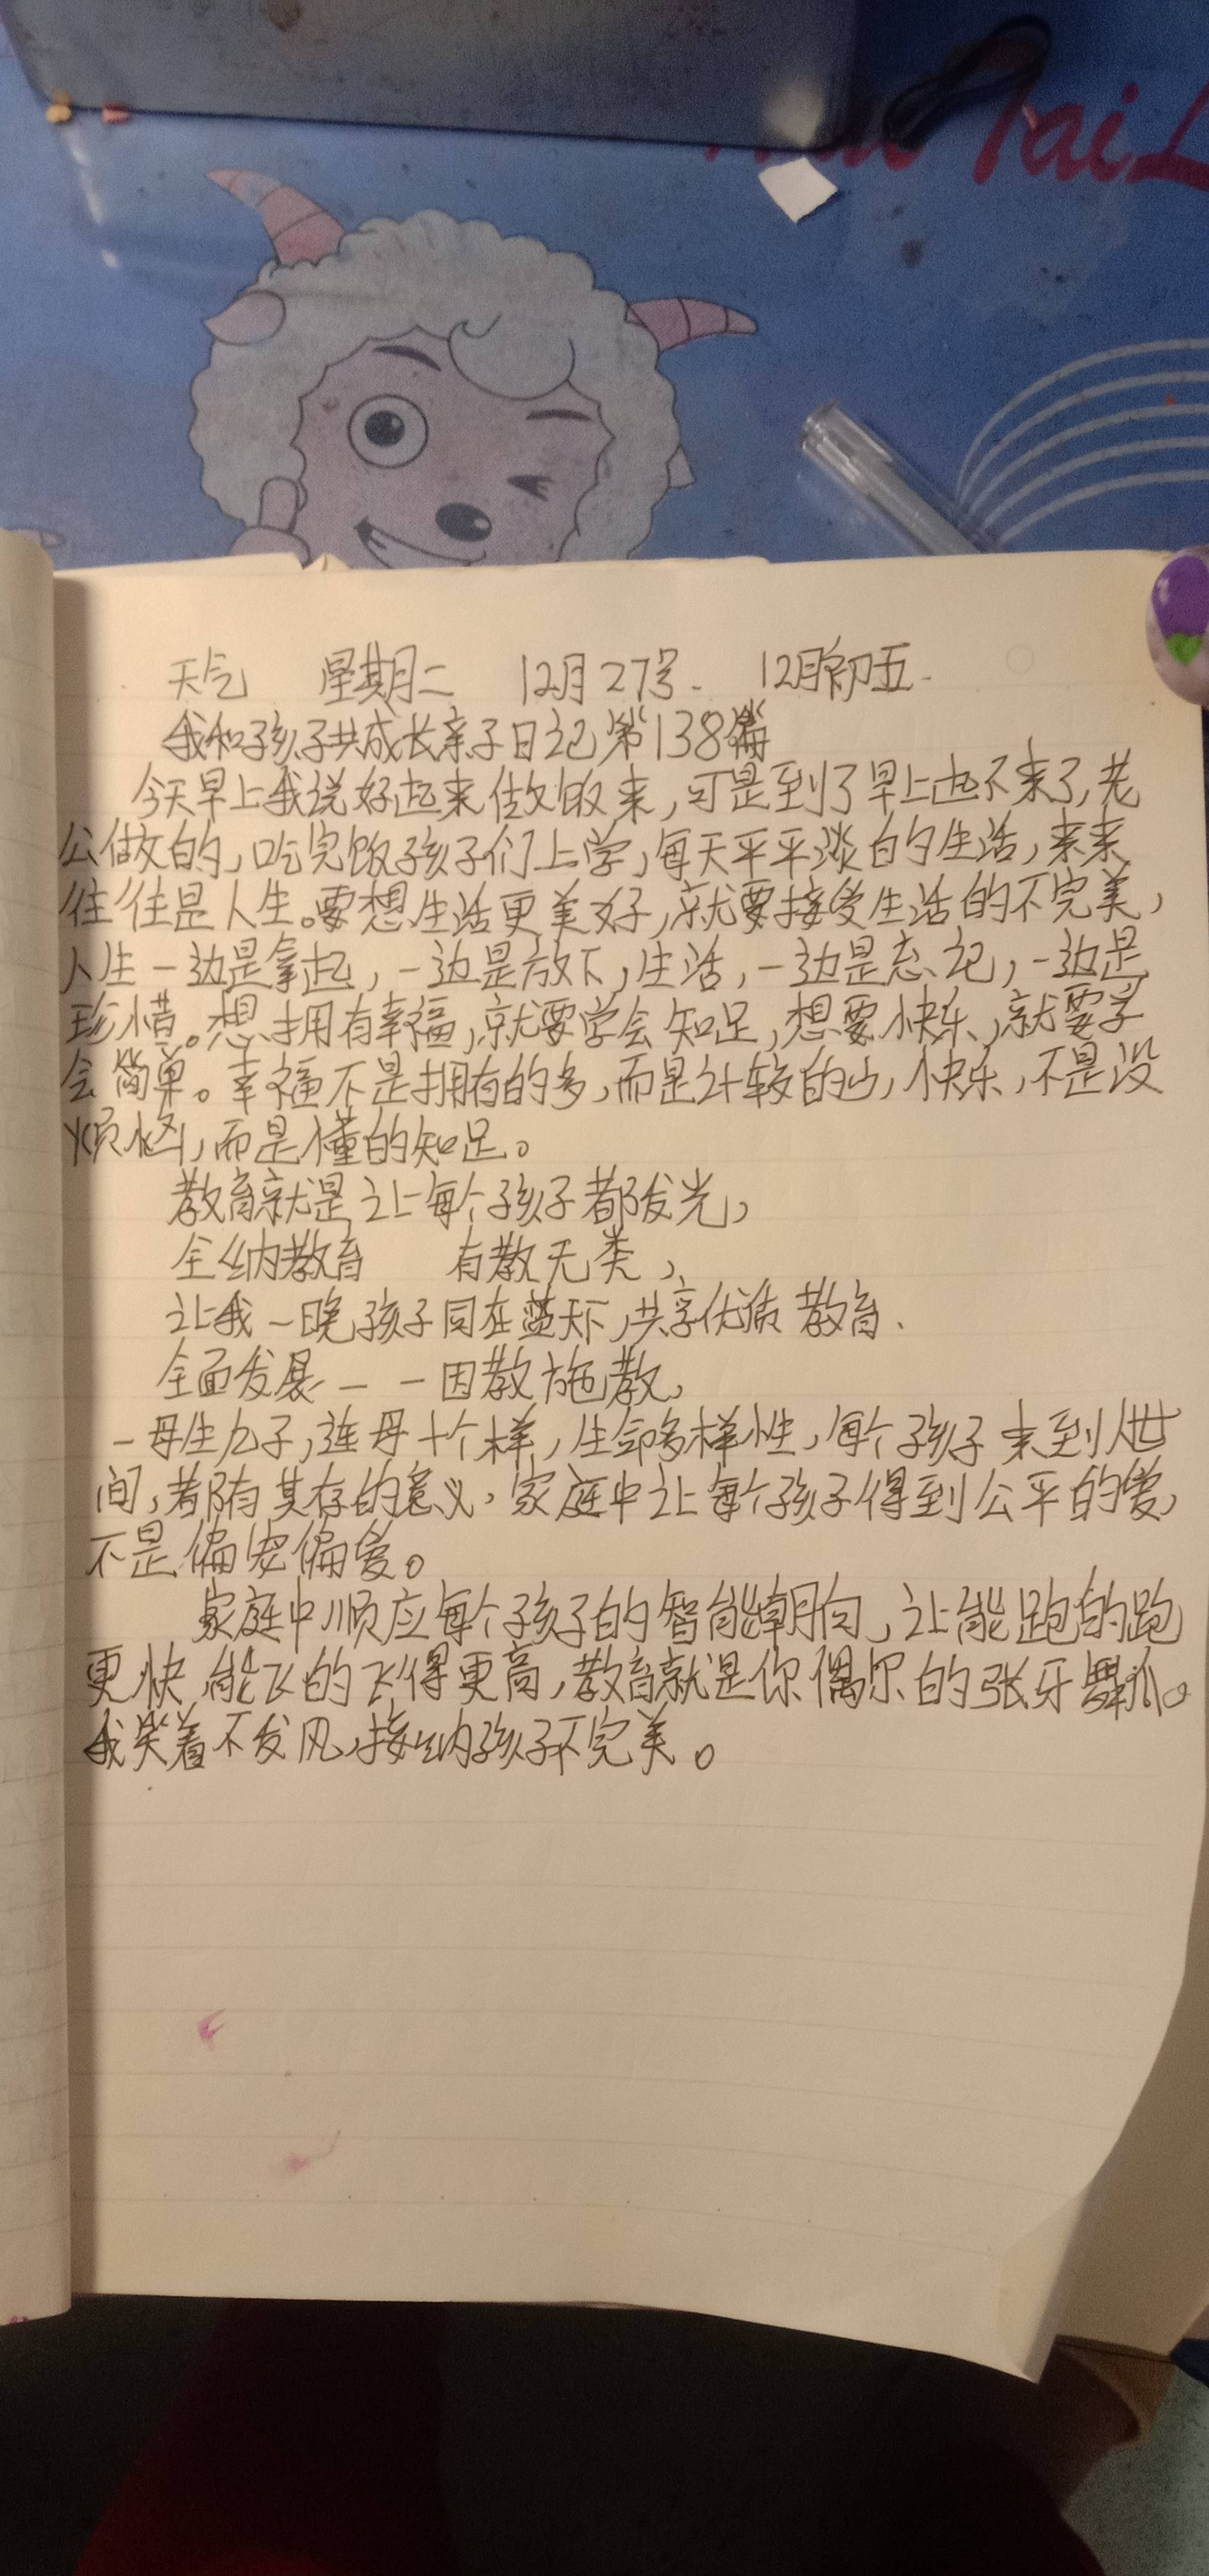 Tai L
天气 星期二 12月27号. 12月初五.
我和孩子共成长亲子日记第138篇
今天早上我说好起来做饭来,可是到了早上起不来了,老
公做的,吃完饭孩子们上学,每天平平淡的生活,来来
往往是人生。要想生活更美好,就要接受生活的不完美,
人生一边是拿起,一边是放下,生活,一边是忘记,一边是
珍惜。想拥有幸福,就要学会知足,想要快乐,就要学
会简单。幸福不是拥有的多,而是计较的少,快乐,不是没
烦恼,而是懂的知足。
教育就是让每个孩子都发光,
全纳教育 有教无类,
让我一晚孩子同在蓝天下,共享优质教育.
全面发展——因教施教,
一母生九子,连母十个样,生命多样性,每个孩子来到人世
间,都有其存的意义,家庭中让每个孩子得到公平的爱,
不是偏宠偏爱。
家庭中顺应每个孩子的智能朝向,让能跑的跑
更快,能飞的飞得更高,教育就是你偶尔的张牙舞爪。
我笑着不发风,接纳孩子不完美。